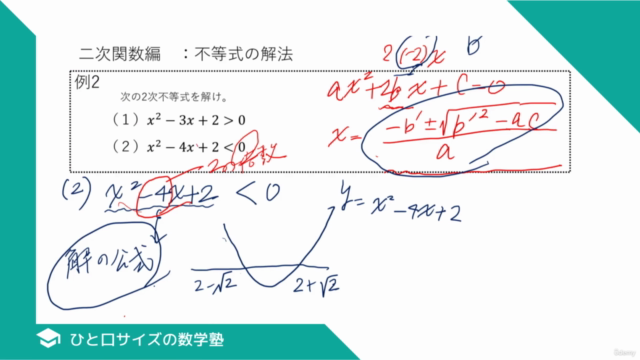 二次関数編 ：不等式の解法
2(-2)x b
例2
次の2次不等式を解け。
(1) x² − 3x + 2 > 0
(2) x² − 4x + 2 < 0
ax²+2b'x+c=0
x= -b'±√b'²-ac
a
2の倍数
(2) x²-4x+2 <0
y=x²-4x+2
解の公式
2-√2 2+√2
ひと口サイズの数学塾